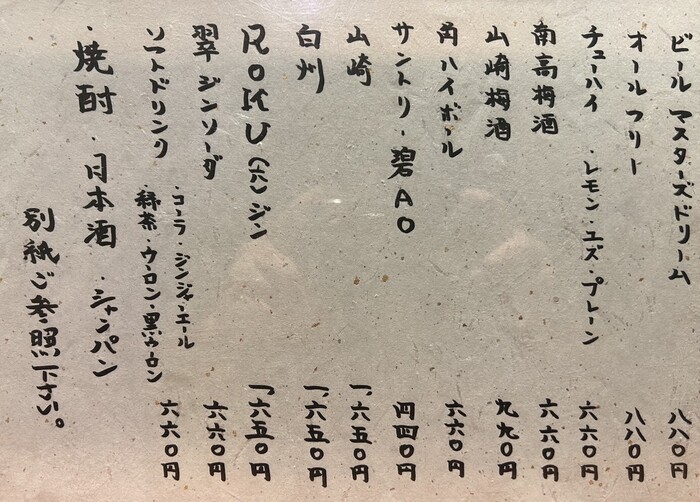 ビール マスターズドリーム 八八〇円
オールフリー 八八〇円
チューハイ ・レモン・ユズ・プレーン 六六〇円
南高梅酒 六六〇円
山崎梅酒 九九〇円
角ハイボール 六六〇円
サントリー碧AO 四四〇円
山崎 一、六五〇円
白州 一、六五〇円
ROKU(六)ジン 一、六五〇円
翠ジンソーダ 六六〇円
ソフトドリンク ・コーラ・ジンジャーエール
・緑茶・ウーロン・黒ウーロン 六六〇円
・焼酎・日本酒・シャンパン
別紙ご参照下さい。